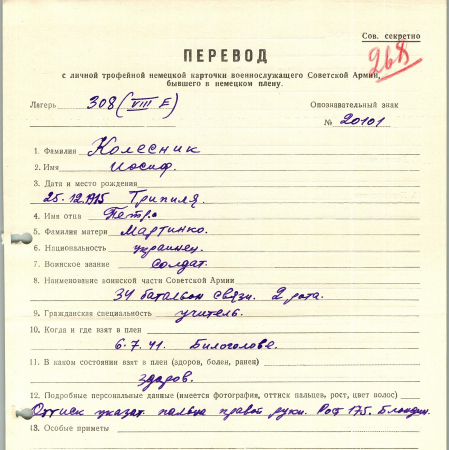 Сов. секретно
268
ПЕРЕВОД
с личной трофейной немецкой карточки военнослужащего Советской Армии,
бывшего в немецком плену.
Лагерь 308 (VIII E) Опознавательный знак
№ 20101
1. Фамилия Колесник
2. Имя Иосиф.
3. Дата и место рождения
25.12.1915 Трипиля.
4. Имя отца Петро
5. Фамилия матери Мартинко.
6. Национальность украинец.
7. Воинское звание солдат.
8. Наименование воинской части Советской Армии
34 батальон связи. 2 рота.
9. Гражданская специальность учитель.
10. Когда и где взят в плен
6.7.41. Билоголове.
11. В каком состоянии взят в плен (здоров, болен, ранен)
здоров.
12. Подробные персональные данные (имеется фотография, оттиск пальцев, рост, цвет волос)
Оттиск указат. пальца правой руки. Рост 175. Блондин.
13. Особые приметы